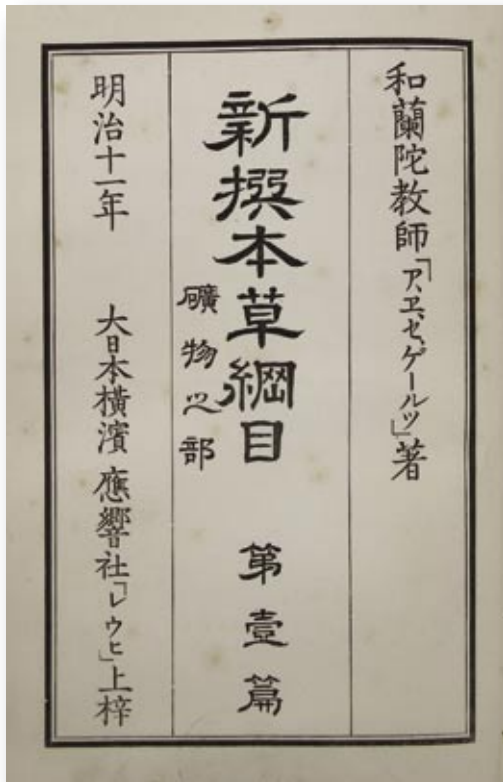 和蘭陀教師「ア、ヱ、セ、ゲールツ」著
新撰本草綱目 第壹篇
礦物之部
明治十一年 大日本横濱 應響社「レウヒ」上梓